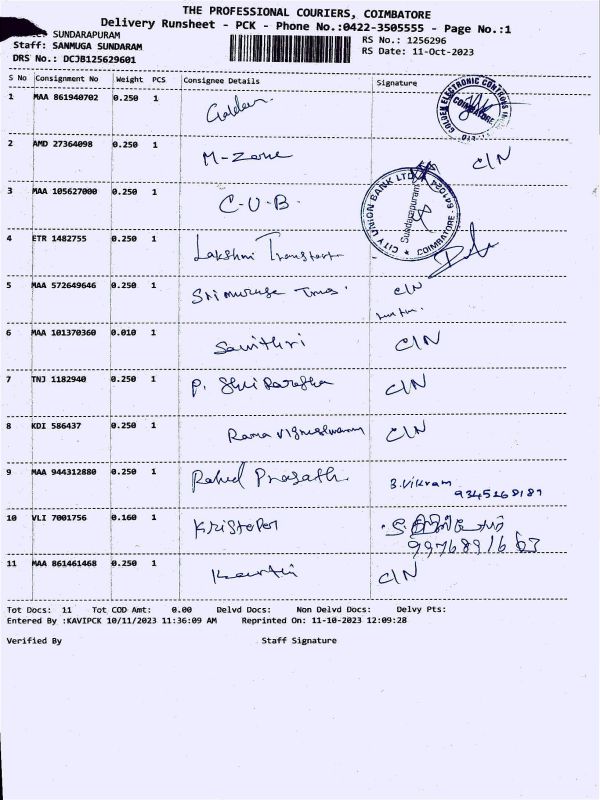 THE PROFESSIONAL COURIERS, COIMBATORE
Delivery Runsheet - PCK - Phone No.:0422-3505555 - Page No.:1
SUNDARAPURAM
RS No.: 1256296
Staff: SANMUGA SUNDARAM
RS Date: 11-Oct-2023
DRS No.: DCJB125629601
S No Consignment No Weight PCS Consignee Details Signature
1 MAA 861940702 0.250 1 Golden
GOLDEN ELECTRONIC CONTROLS
COIMBATORE
2 AMD 27364098 0.250 1 M-Zone C/N
3 MAA 105627000 0.250 1 C.U.B.
CITY UNION BANK LTD
Sundarapuram
COIMBATORE - 641024
4 ETR 1482755 0.250 1 Lakshmi
5 MAA 572649646 0.250 1 C/N
6 MAA 101370360 0.010 1 C/N
7 TNJ 1182940 0.250 1 P. C/N
8 KDI 586437 0.250 1 Rama Vigneshwaran C/N
9 MAA 944312880 0.250 1 Rahul Prasath B.Vikram
9345268181
10 VLI 7001756 0.160 1
9976891663
11 MAA 861461468 0.250 1 C/N
Tot Docs: 11 Tot COD Amt: 0.00 Delvd Docs: Non Delvd Docs: Delvy Pts:
Entered By :KAVIPCK 10/11/2023 11:36:09 AM Reprinted On: 11-10-2023 12:09:28
Verified By Staff Signature